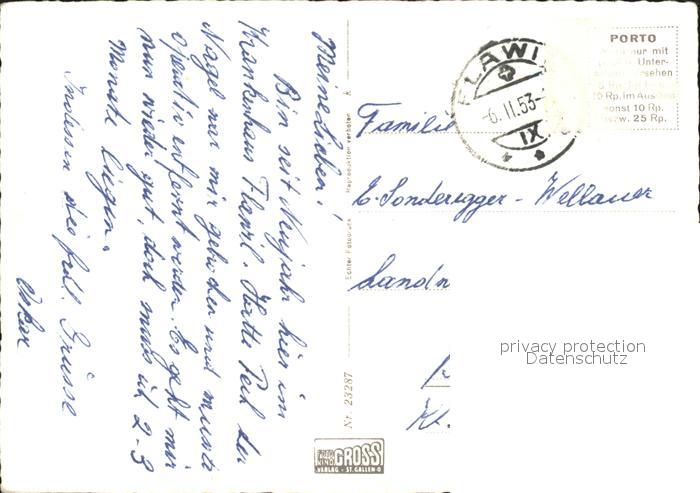 Meine Lieben!
Bin seit Neujahr hier im
Krankenhaus Flawil. Hatte Pech der
Nagel war mir gebrochen und musste
operativ entfernt werden. Es geht mir
nun wieder gut, doch muss ich 2-3
Monate liegen.
Indessen die frdl. Grüsse
Oskar
Echter Fotogr
Reproduktion verboten
Nr. 23287
GROSS
VERLAG - ST. GALLEN O
FLAWIL
-6. II. 53-
IX
PORTO
nur mit
Unter-
sehen
10 Rp. im Aus
onst 10 Rp.
zw. 25 Rp.
Familie
E. Sonderegger - Wellauer
Landw
Kt.
privacy protection
Datenschutz